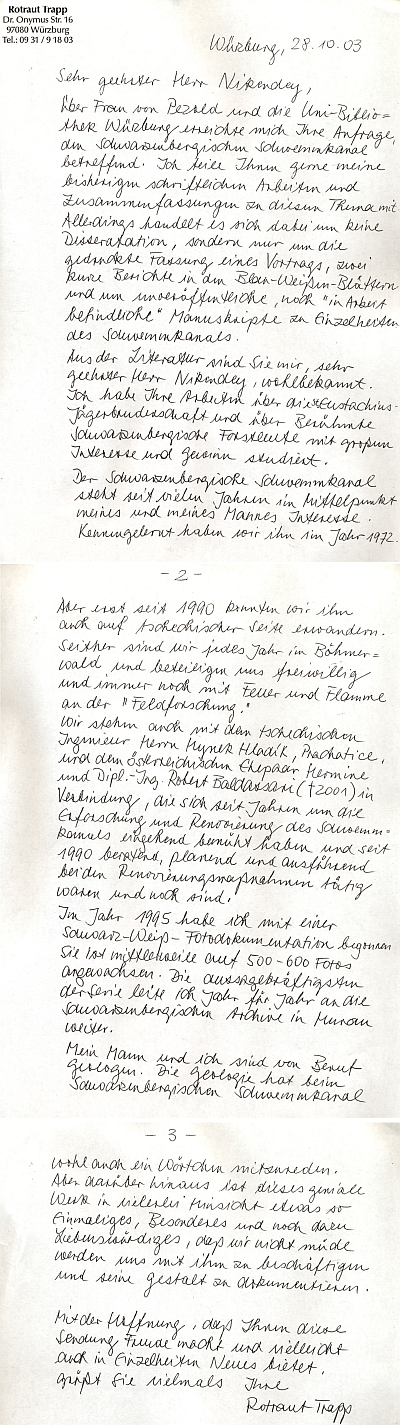 Rotraut Trapp
Dr. Onymus Str. 16
97080 Würzburg
Tel.: 09 31 / 9 18 03
Würzburg, 28.10.03
Sehr geehrter Herr Nikendey,
über Frau von Pezold und die Uni-Biblio=
thek Würzburg erreichte mich Ihre Anfrage,
den Schwarzenbergischen Schwemmkanal
betreffend. Ich teile Ihnen gerne meine
bisherigen schriftlichen Arbeiten und
Zusammenfassungen zu diesem Thema mit.
Allerdings handelt es sich dabei um keine
Dissertation, sondern nur um die
gedruckte Fassung eines Vortrags, zwei
kurze Berichte in den Blau-Weißen-Blättern
und um unveröffentlichte, noch "in Arbeit
befindliche" Manuskripte zu Einzelheiten
des Schwemmkanals.
Aus der Literatur sind Sie mir, sehr
geehrter Herr Nikendey, wohlbekannt.
Ich habe Ihre Arbeiten über die Eustachius-
Jägerbruderschaft und über Berühmte
Schwarzenbergische Forstleute mit großem
Interesse und Gewinn studiert.
Der Schwarzenbergische Schwemmkanal
steht seit vielen Jahren im Mittelpunkt
meines und meines Mannes Interesse.
Kennengelernt haben wir ihn im Jahr 1972.
- 2 -
Aber erst seit 1990 konnten wir ihn
auch auf tschechischer Seite erwandern.
Seither sind wir jedes Jahr im Böhmer=
wald und beteiligen uns freiwillig
und immer noch mit Feuer und Flamme
an der "Feldforschung".
Wir stehen auch mit dem tschechischen
Ingenieur Herrn Hynek Hladík, Prachatice,
und dem österreichischen Ehepaar Hermine
und Dipl.-Ing. Robert Baldassari (†2001) in
Verbindung, die sich seit Jahren um die
Erforschung und Renovierung des Schwemm=
kanals eingehend bemüht haben und seit
1990 beratend, planend und ausführend
bei den Renovierungsmaßnahmen tätig
waren und noch sind.
Im Jahr 1995 habe ich mit einer
Schwarz-Weiß-Fotodokumentation begonnen
Sie ist mittlerweile auf 500-600 Fotos
angewachsen. Die aussagekräftigsten
der Serie leite ich Jahr für Jahr an die
Schwarzenbergischen Archive in Murau
weiter.
Mein Mann und ich sind von Beruf
Geologen. Die Geologie hat beim
Schwarzenbergischen Schwemmkanal
- 3 -
wohl auch ein Wörtchen mitzureden.
Aber darüber hinaus ist dieses geniale
Werk in vielerlei Hinsicht etwas so
Einmaliges, Besonderes und noch dazu
Liebenswürdiges, daß wir nicht müde
werden uns mit ihm zu beschäftigen
und seine Gestalt zu dokumentieren.
Mit der Hoffnung, daß Ihnen diese
Sendung Freude macht und vielleicht
auch in Einzelheiten Neues bietet,
grüßt Sie vielmals Ihre
Rotraut Trapp